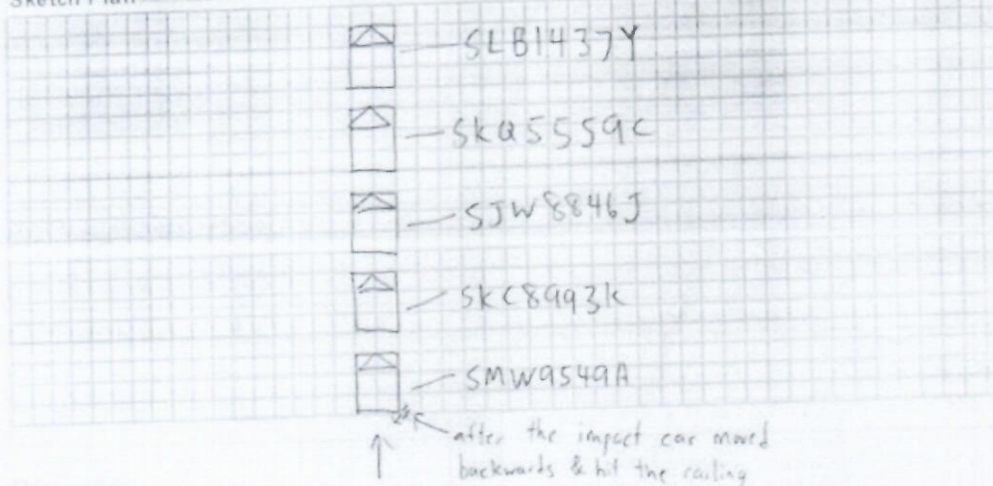 Sketch Plan
SLB1437Y
SKQ5559C
SJW8846J
SKC8993K
SMW9549A
after the impact car moved
backwards & hit the railing